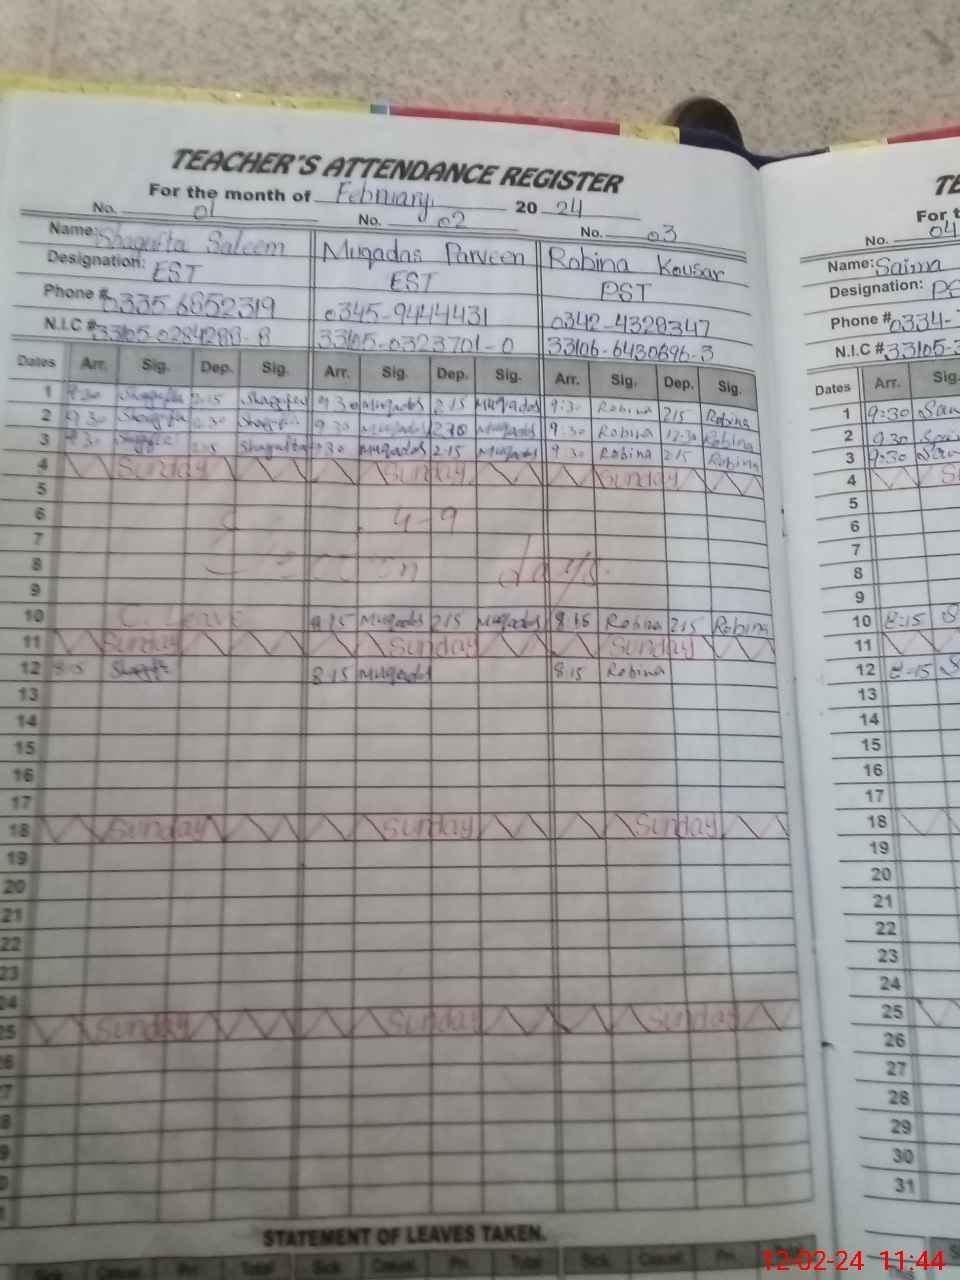 TEACHER'S ATTENDANCE REGISTER
For the month of February 2024
No. 01 No. 02 No. 03
Name: Shagufta Saleem Muqadas Parveen Robina Kousar
Designation: EST EST PST
Phone # 0335 6852319 0345-9444431 0342-4328347
N.I.C # 33105-0284288-8 33105-0323701-0 33106-6430696-3
Dates Arr. Sig. Dep. Sig. Arr. Sig. Dep. Sig. Arr. Sig. Dep. Sig.
1 9:30 Shagufta 2:15 Shagufta 9 30 Muqadas 2 15 Muqadas 9:30 Robina 2 15 Robina
2 9 30 Shagufta Shagufta 9 30 Muqadas Muqadas 9:30 Robina 12-30 Robina
3 9 30 Shagufta 9 30 Muqadas 2:15 Muqadas 9:30 Robina 2 15 Robina
4 Sunday Sunday Sunday
5
6 4-9
7
8 Election days.
9
10 C. Leave 8 15 Muqadas 2 15 Muqadas 8:15 Robina 2 15 Robina
11 Sunday Sunday Sunday
12 8:15 8 15 Muqadas 8 15 Robina
13
14
15
16
17
18 Sunday Sunday Sunday
19
20
21
22
23
24
25 Sunday Sunday Sunday
STATEMENT OF LEAVES TAKEN.
For t
No. 04
Name: Saima
Designation: PS
Phone # 0334-
N.I.C # 33105-3
Dates Arr. Sig.
1 9:30
2 9 30
3 9:30
4
5
6
7
8
9
10 8:15
11
12 8-15
13
14
15
16
17
18
19
20
21
22
23
24
25
26
27
28
29
30
31
12-02-24 11:44